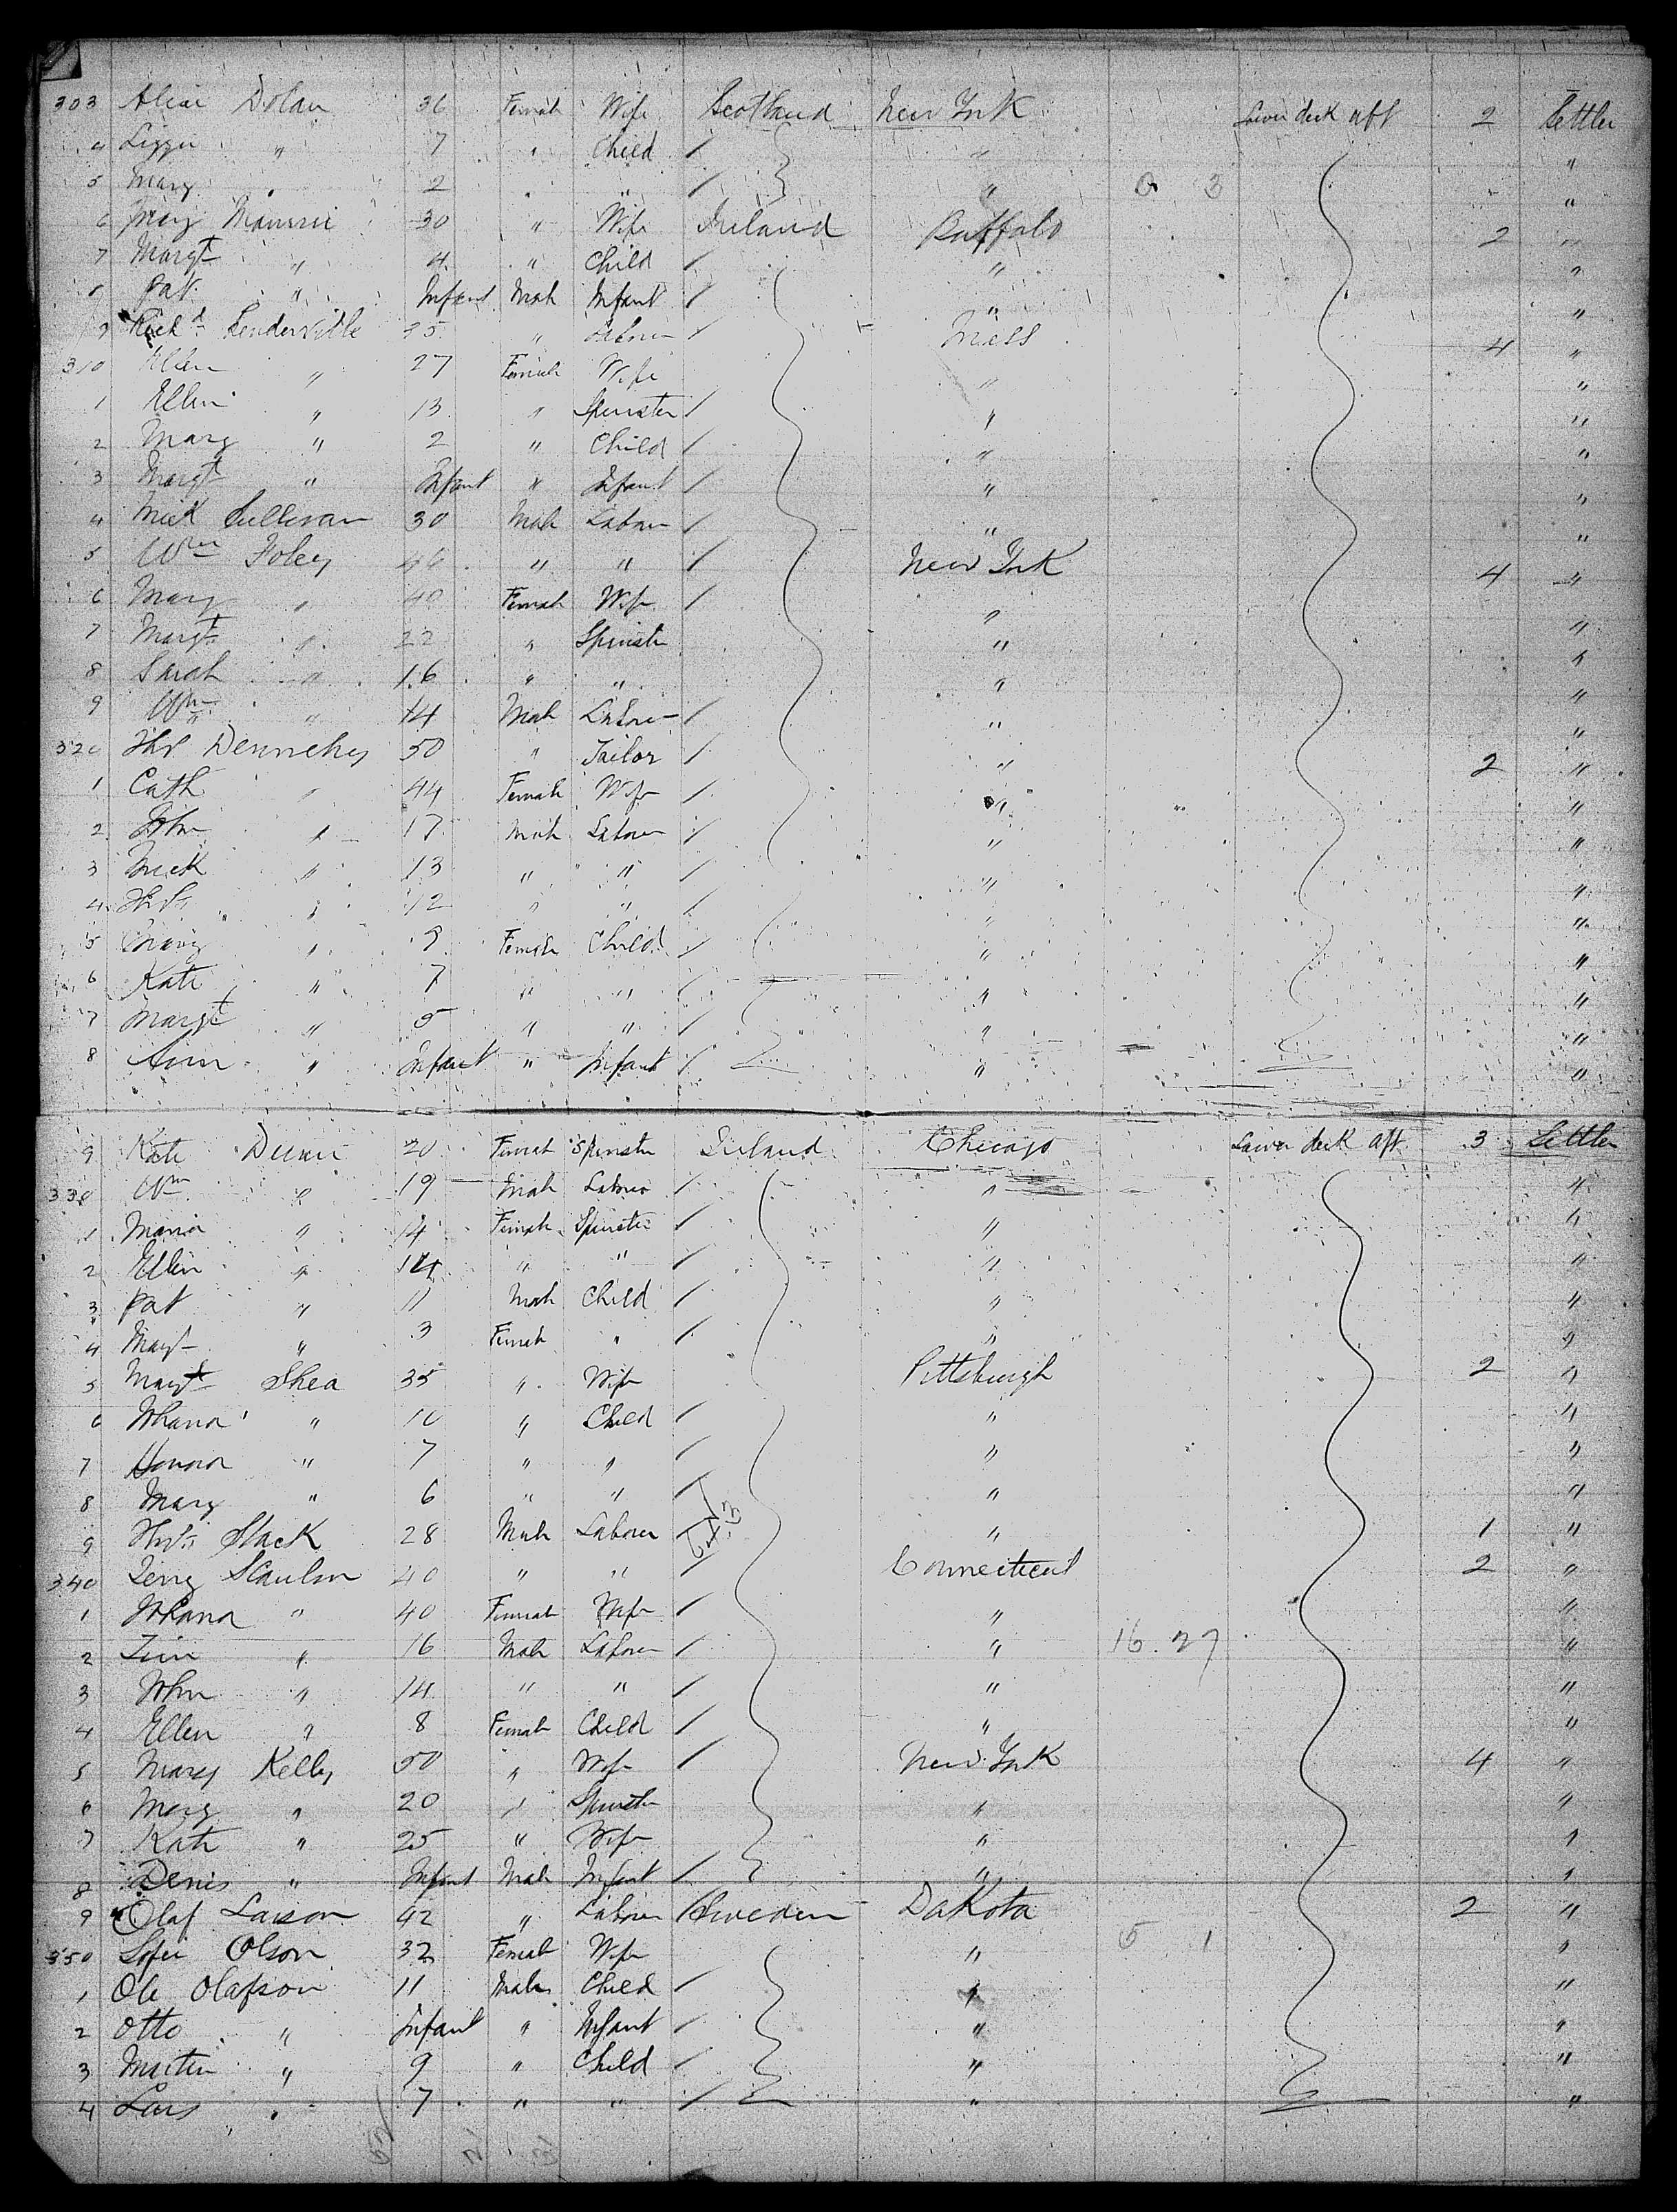 303 Dolan 36 Female Wife Scotland New York Lower deck aft 2 Settler
4 Lizzie " 7 " Child / " "
5 Mary " 2 " " / " 0 3 "
6 Mary 30 " Wife Ireland Buffalo 2 "
7 Margt " 4 " Child / " "
8 Pat " Infant Male Infant / " "
9 Richd 35 " Laborer / Mass 4 "
310 Ellen " 27 Female Wife " "
1 Ellen " 13 " Spinster / " "
2 Mary " 2 " Child / " "
3 Margt " Infant " Infant / " "
4 Mick Sullivan 30 Male Laborer / " "
5 Wm Foley 46 " " / New York 4 "
6 Mary " 40 Female Wife / " "
7 Margt " 22 " Spinster " "
8 Sarah " 16 " " " "
9 Wm " 14 Male Laborer / " "
320 Thos Dennehy 50 " Tailor / " 2 "
1 Cath " 44 Female Wife / " "
2 John " 17 Male Laborer / " "
3 Mick " 13 " " / " "
4 Thos " 12 " " / " "
5 Mary " 9 Female Child / " "
6 Kate " 7 " " / " "
7 Margt " 5 " " / " "
8 Ann " Infant " Infant / " "
9 Kate Dunn 20 Female Spinster Ireland Chicago Lower deck aft 3 Settler
330 Wm " 19 Male Laborer / " "
1 Maria " 14 Female Spinster / " "
2 Ellen " 14 " " / " "
3 Pat " 11 Male Child / " "
4 Margt " 3 Female " / " "
5 Margt Shea 35 " Wife Pittsburgh 2 "
6 Johana " 10 " Child / " "
7 Honora " 7 " " / " "
8 Mary " 6 " " / " "
9 Thos Slack 28 Male Laborer / " 1 "
340 Scanlon 40 " " / Connecticut 2 "
1 Johana " 40 Female Wife / " "
2 Tim " 16 Male Laborer / " 16 . 27 "
3 John " 14 " " / " "
4 Ellen " 8 Female Child / " "
5 Mary Kelly 50 " Wife / New York 4 "
6 Mary " 20 " Spinster " "
7 Kate " 25 " Wife " "
8 Denis " Infant Male Infant / " "
9 Olaf Larson 42 " Laborer Sweden Dakota 2 "
350 Sofie Olson 32 Female Wife " 5 1 "
1 Ole Olafson 11 Male Child / " "
2 Otto " Infant " Infant / " "
3 Martin " 9 " Child / " "
4 Lars " 7 " " / " "